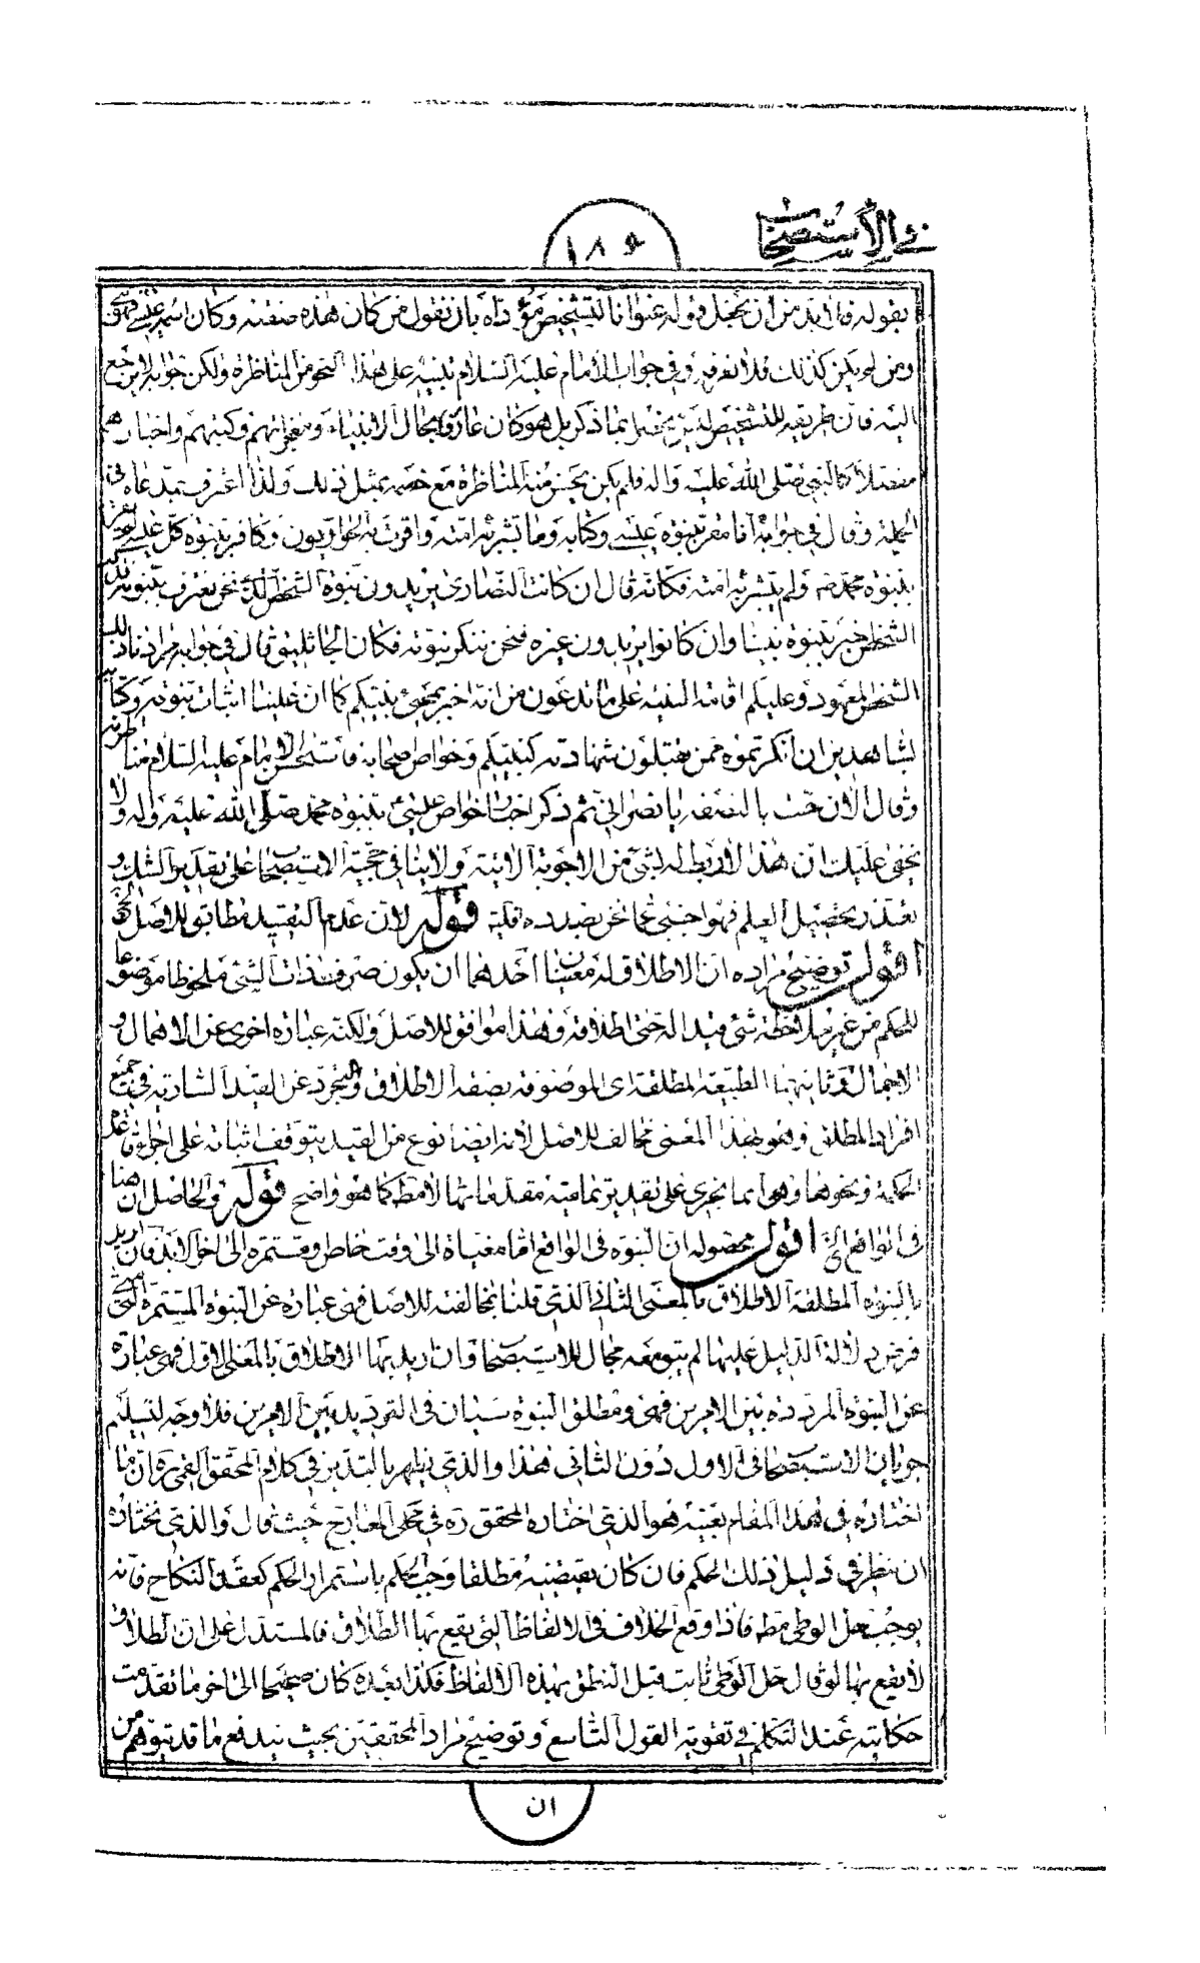 في الاستصحاب
١٨٥
بقوله فلابد من ان يجعل قوله عنوانا لتشخيص مؤداه بان نقول من كان هذه صفته وكان اسمه عيسى فهو
ومن لم يكن كذلك فلا نعرفه وفي جواب الامام عليه السلام تنبيه على هذا النحو من المناظرة ولكن جوابه لا يرجع
اليه فان طريقه للتشخيص لم ينحصر بما ذكر بل هو كان عارفا بحال الانبياء ومعجزاتهم وكتبهم واخبارهم
مفصلا كالنبي صلى الله عليه واله فلم يكن يحسن منه المناظرة مع خصمه بمثل ذلك ولذا اعترف بمدعاه في
الجملة وقال في جوابه انا مقر بنبوة عيسى وكتابه وما بشر به امته واقرت به الحواريون وكافر بنبوة كل عيسى لم يقر
بنبوة محمد ص ولم يبشر به امته فكانه قال ان كانت النصارى يريدون نبوة الشخص الذي نحن نعترف بنبوته فذلك
الشخص خبر بنبوة نبينا وان كانوا يريدون غيره فنحن ننكر نبوته فكان الجاثليق قال في جوابه مرادنا ذلك
الشخص المعهود وعليكم اقامة البينة على ما تدعون من انه اخبر بمجئ نبيكم كما ان علينا اثبات نبوته وكتابه
بشاهدين ان انكرتموه ممن تقبلون شهادته كنبيكم وخواص صحابه فاستحسن الامام عليه السلام مناظرته
وقال الان جئت بالنصفة يا نصراني ثم ذكر اخبار خواص عيسى بنبوة محمد صلى الله عليه واله ولا
يخفى عليك ان هذا لا ربط له بشئ من الاجوبة الاتية ولا ينافي حجية الاستصحاب على تقدير الشك و
تعذر تحصيل العلم فهو اجنبي عما نحن بصدده قوله لان عدم التقييد مطابق للاصل الخ
اقول توضيح مراده ان الاطلاق له معنيان احدهما ان يكون صرف ذات الشئ ملحوظا موضوعا
للحكم من غير ملاحظة شئ قيدا له حتى اطلاقه وهذا موافق للاصل ولكنه عبارة اخرى عن الاهمال و
الاجمال وثانيهما الطبيعة المطلقة اى الموصوفة بصفة الاطلاق والتجرد عن القيد السارية في جميع
افراد المطلق وهو بهذا المعنى مخالف للاصل لانه ايضا نوع من القيد يتوقف اثباته على اجراء مقدمات
الحكمة ونحوها وهو انما يجرى على تقدير تمامية مقدماتها لا مط كما هو واضح قوله والحاصل ان هنا
في الواقع الخ اقول محصوله ان النبوة في الواقع اما مغياة الى وقت خاص ومستمرة الى اخر الابد فان اريد
بالنبوة المطلقة الاطلاق بالمعنى الثاني الذي قلنا بمخالفته للاصل فهى عبارة عن النبوة المستمرة التي
فرض دلالة الدليل عليها لم يبق معه مجال للاستصحاب وان اريد بها الاطلاق بالمعنى الاول فهى عبارة
عن النبوة المرددة بين الامرين فهى ومطلق النبوة سيان في الترديد بين الامرين فلا وجه لتسليم
جريان الاستصحاب في الاول دون الثاني فهذا والذي يظهر بالتدبر في كلام المحقق القمي ره ان ما
اختاره في هذا المقام بعينه هو الذي اختاره المحقق ره في محكى المعارج حيث قال والذي نختاره
ان ننظر في دليل ذلك الحكم فان كان يقتضيه مطلقا وجب الحكم باستمرار الحكم كعقد النكاح فانه
يوجب حل الوطى مط فاذا وقع الخلاف في الالفاظ التي يقع بها الطلاق فالمستدل على ان الطلاق
لا يقع بها لو قال حل الوطى ثابت قبل النطق بهذه الالفاظ فكذا بعده كان صحيحا الى اخر ما تقدمت
حكايته عند التكلم في تقوية القول التاسع وتوضيح مراد المحققين بحيث يندفع ما قد يتوهم من
ان